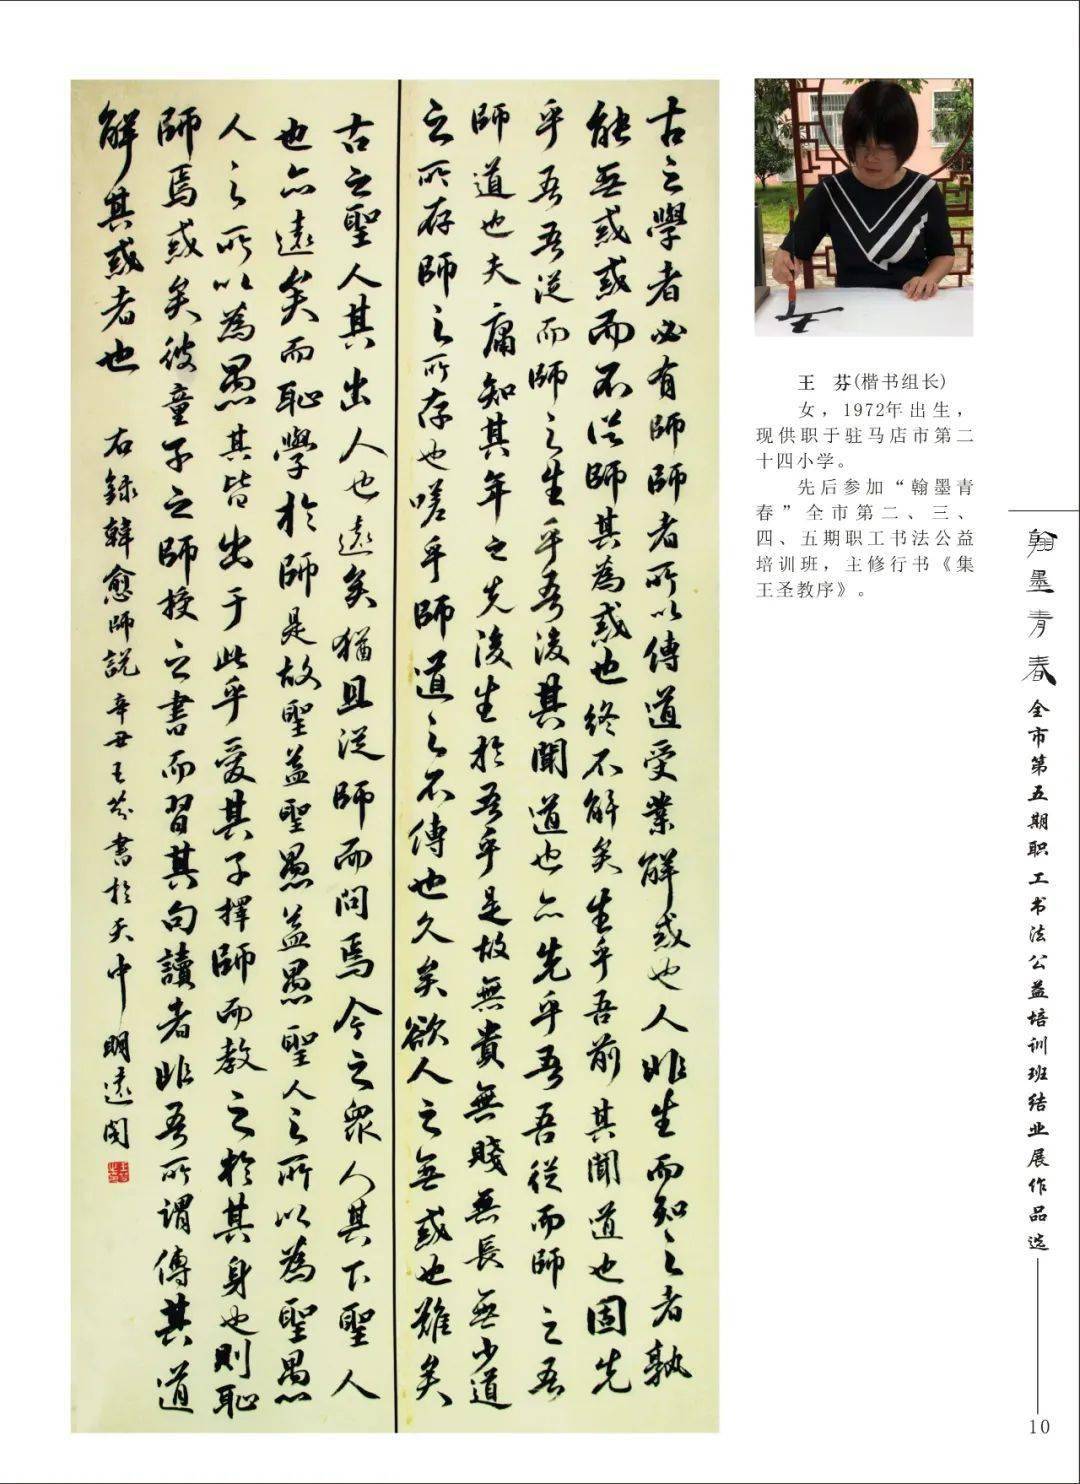 古之學者必有師師者所以傳道受業解惑也人非生而知之者孰
能無惑惑而不從師其為惑也終不解矣生乎吾前其聞道也固先
乎吾吾從而師之生乎吾後其聞道也亦先乎吾吾從而師之吾
師道也夫庸知其年之先後生於吾乎是故無貴無賤無長無少道
之所存師之所存也嗟乎師道之不傳也久矣欲人之無惑也難矣
古之聖人其出人也遠矣猶且從師而問焉今之眾人其下聖人
也亦遠矣而恥學於師是故聖益聖愚益愚聖人之所以為聖愚
人之所以為愚其皆出于此乎愛其子擇師而教之於其身也則恥
師焉惑矣彼童子之師授之書而習其句讀者非吾所謂傳其道
解其惑者也 右錄韓愈師說辛丑王芬書於天中明遠閣
王 芬(楷书组长)
女，1972年出生，
现供职于驻马店市第二
十四小学。
先后参加“翰墨青
春”全市第二、三、
四、五期职工书法公益
培训班，主修行书《集
王圣教序》。
翰墨青春
全市第五期职工书法公益培训班结业展作品选
10